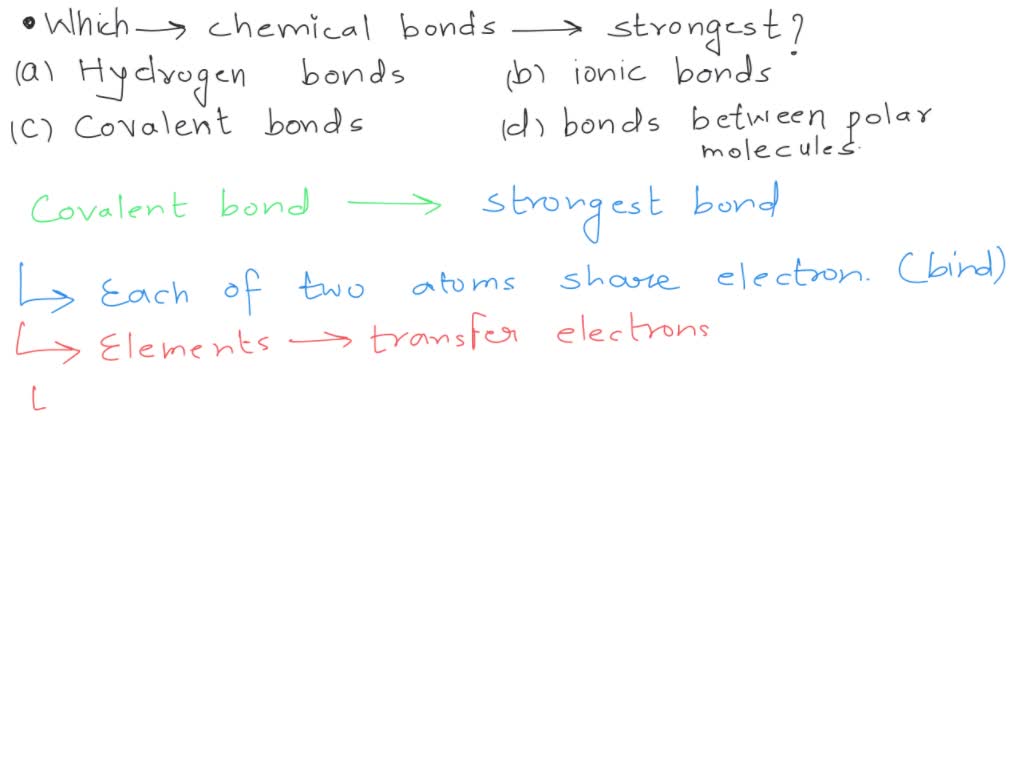 • Which → chemical bonds → strongest?
(a) Hydrogen bonds (b) ionic bonds
(C) Covalent bonds (d) bonds between polar molecules.
Covalent bond → strongest bond
↳ Each of two atoms share electron. (bind)
↳ Elements → transfer electrons